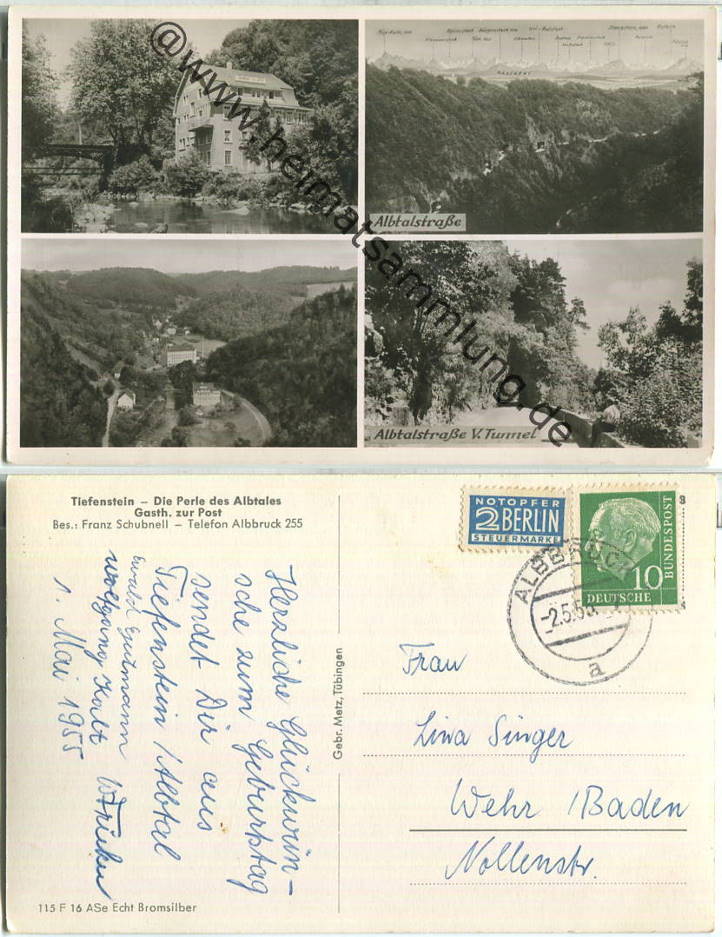 @www.heimatsammlung.de
Albtalstraße
Albtalstraße V. Tunnel
Tiefenstein – Die Perle des Albtales
Gasth. zur Post
Bes.: Franz Schubnell – Telefon Albbruck 255
Herzliche Glückwün-
sche zum Geburtstag
sendet Dir aus
Tiefenstein /Albtal
Ewald Gutmann
Wolfgang Kalt
1. Mai 1955
Gebr. Metz, Tübingen
115 F 16 ASe Echt Bromsilber
NOTOPFER
2 BERLIN
STEUERMARKE
DEUTSCHE
BUNDESPOST
10
ALBBRUCK
-2.5.55
a
Frau
Lina Singer
Wehr /Baden
Nollenstr.